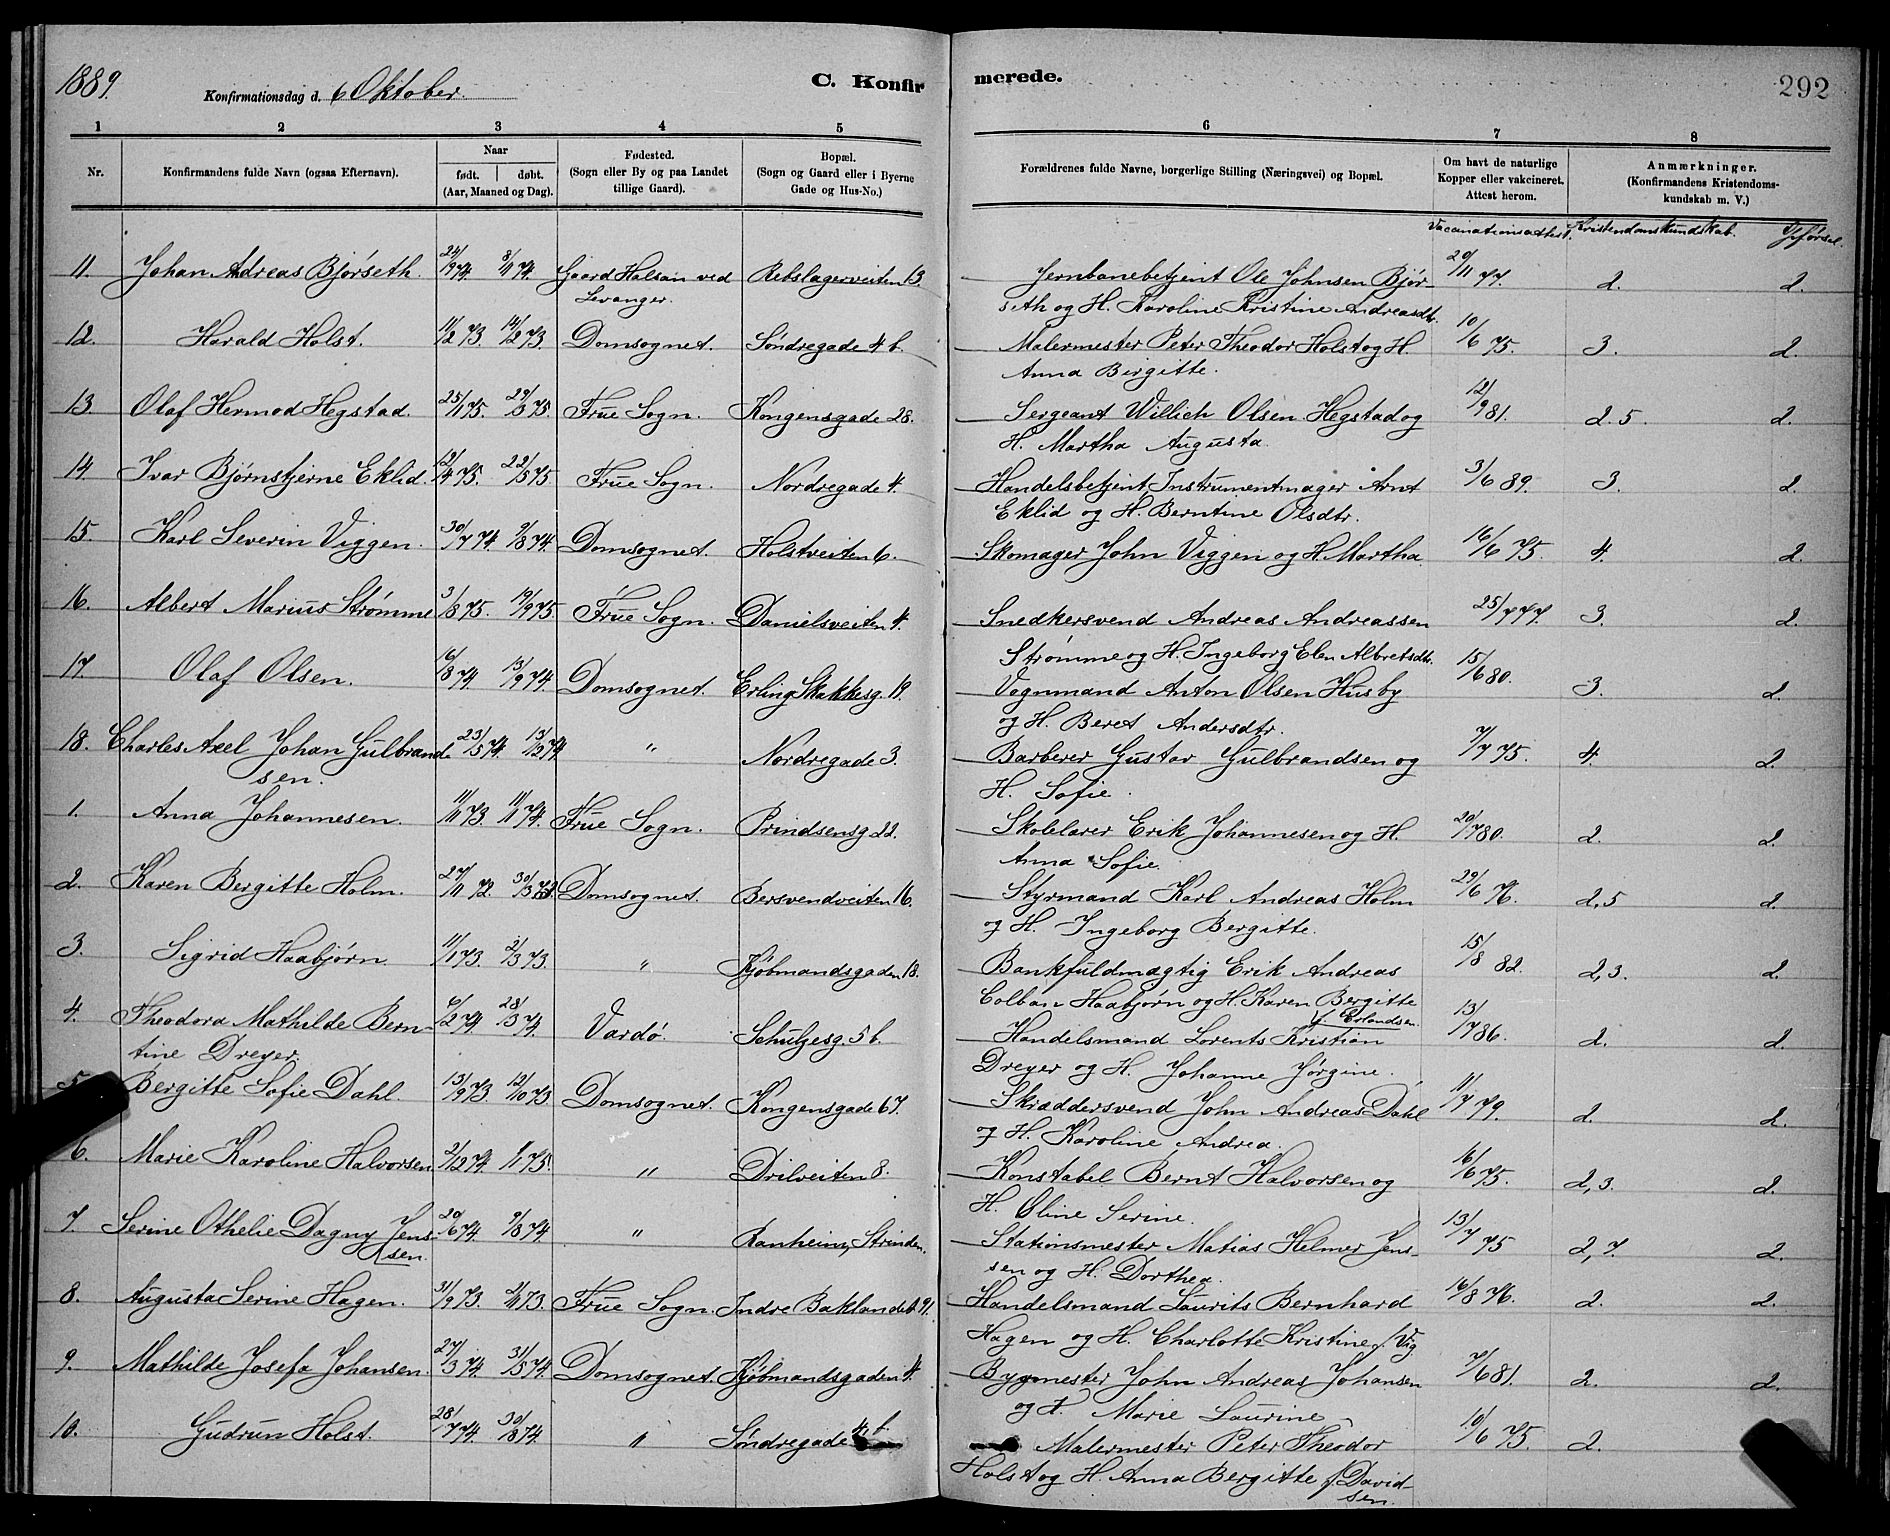 1889.
Konfirmationsdag d. 6 Oktober.
C. Konfirmerede.
292
1 2 3 4 5 6 7 8
Nr.
Konfirmandens fulde Navn (ogsaa Efternavn).
Naar
født. døbt.
(Aar, Maaned og Dag).
Fødested.
(Sogn eller By og paa Landet
tillige Gaard).
Bopæl.
(Sogn og Gaard eller i Byerne
Gade og Hus-No.)
Forældrenes fulde Navne, borgerlige Stilling (Næringsvei) og Bopæl.
Om havt de naturlige
Kopper eller vakcineret.
Attest herom.
Anmærkninger.
(Konfirmandens Kristendoms-
kundskab m. V.)
Vaccinationsattest. Kristendomskundskab.
11. Johan Adreas Bjørseth. 24/9 74. 8/11 74. Gaard Halsan ved Rebslagerveiten 13. Jernbanebetjent Ole Johnsen Bjør- 20/11 77. 2. 2.
Levanger. seth og H. Karoline Kristine Andreasdtr.
12. Harald Holst. 11/2 73. 14/2 73. Domsognet. Søndregade 4 b. Malermester Peter Theodor Holst og H. 10/6 75. 3. 2.
Anna Bergitte.
13. Olaf Hermod Hegstad. 25/1 75. 29/3 75. Frue Sogn. Kongensgade 28. Sergeant Willich Olsen Hegstad og 12/9 81. 2.5 2.
H. Martha Augusta.
14. Ivar Bjørnstjerne Eklid. 12/4 75. 22/5 75. Frue Sogn. Nordregade 4. Handelsbetjent, Instrumentmager Arnt 3/6 89. 3. 2.
Eklid og H. Berntine Olsdtr.
15. Karl Severin Viggen. 30/7 74. 9/8 74. Domsognet. Holstveiten 6. Skomager John Viggen og H. Martha 16/6 75. 4. 2.
16. Albert Marius Strømme 3/8 75. 19/9 75. Frue Sogn. Danielsveiten 4. Snedkersvend Andreas Andreassen 25/7 77. 3. 2.
Strømme og H. Ingeborg Elen Albretsdtr.
17. Olaf Olsen. 16/8 74. 13/9 74. Domsognet. Erling Skakkesg. 19. Vognmand Anton Olsen Husby 15/6 80. 3. 2.
og H. Beret Andersdtr.
18. Charles Axel Johan Gulbrand- 23/5 74. 13/12 74 " Nordregade 3. Barberer Gustav Gulbrandsen og 7/7 75. 4. 2.
sen. H. Sofie.
1. Anna Johannesen. 11/11 73. 11/1 74. Frue Sogn. Prindsensg 22. Skolelærer Erik Johannesen og H. 20/7 80. 2. 2.
Anna Sofie.
2. Karen Bergitte Holm. 27/11 72. 30/3 73. Domsognet. Bersvendveiten 16. Styrmand Karl Andreas Holm 29/6 76. 2,5 2.
og H. Ingeborg Bergitte.
3. Sigrid Haabjørn. 11/1 73. 2/3 73. " Kjøbmandsgaden 18. Bankfuldmægtig Erik Andreas 15/8 82. 2,3. 2.
Colban Haabjørn og H. Karen Bergitte
f. Erlandsen.
4. Theodora Mathilde Bern- 6/2 74. 28/3 74. Vardø. Schultzesg. 5 b. Handelsmand Lorents Kristian 13/7 86. 2. 2.
tine Dreyer. Dreyer og H. Johanne Jørgine.
5. Bergitte Sofie Dahl. 13/9 73. 12/10 73 Domsognet. Kongensgade 67. Skræddersvend John Andreas Dahl 11/7 79. 2. 2.
og H. Karoline Andrea.
6. Marie Karoline Halvorsen. 2/12 74. 1/1 75. " Drilveiten 8. Konstabel Bernt Halvorsen og 16/6 75. 2,3. 2.
H. Oline Serine.
7. Serine Othelie Dagny Jens- 20/6 74 9/8 74. " Ranheim, Strinden. Stationsmester Matias Helmer Jens- 13/7 75 2,7. 2.
sen. sen og H. Dorthea.
8. Augusta Serine Hagen. 31/9 73. 2/11 73. Frue Sogn. Indre Baklandet 91. Handelsmand Laurits Bernhard 16/8 76. 2. 2.
Hagen og H. Charlotte Kristine f. Vig
9. Mathilde Josefa Johansen. 27/3 74. 31/5 74. Domsognet. Kjøbmandsgaden 4. Bygmester John Andreas Johansen 7/6 81. 2. 2.
og H. Marie Laurine
10. Gudrun Holst. 28/7 74. 30/8 74. " Søndregade 4 b. Malermester Peter Theodor 10/6 75. 2.
Holst og H. Anna Bergitte f. David-
sen.